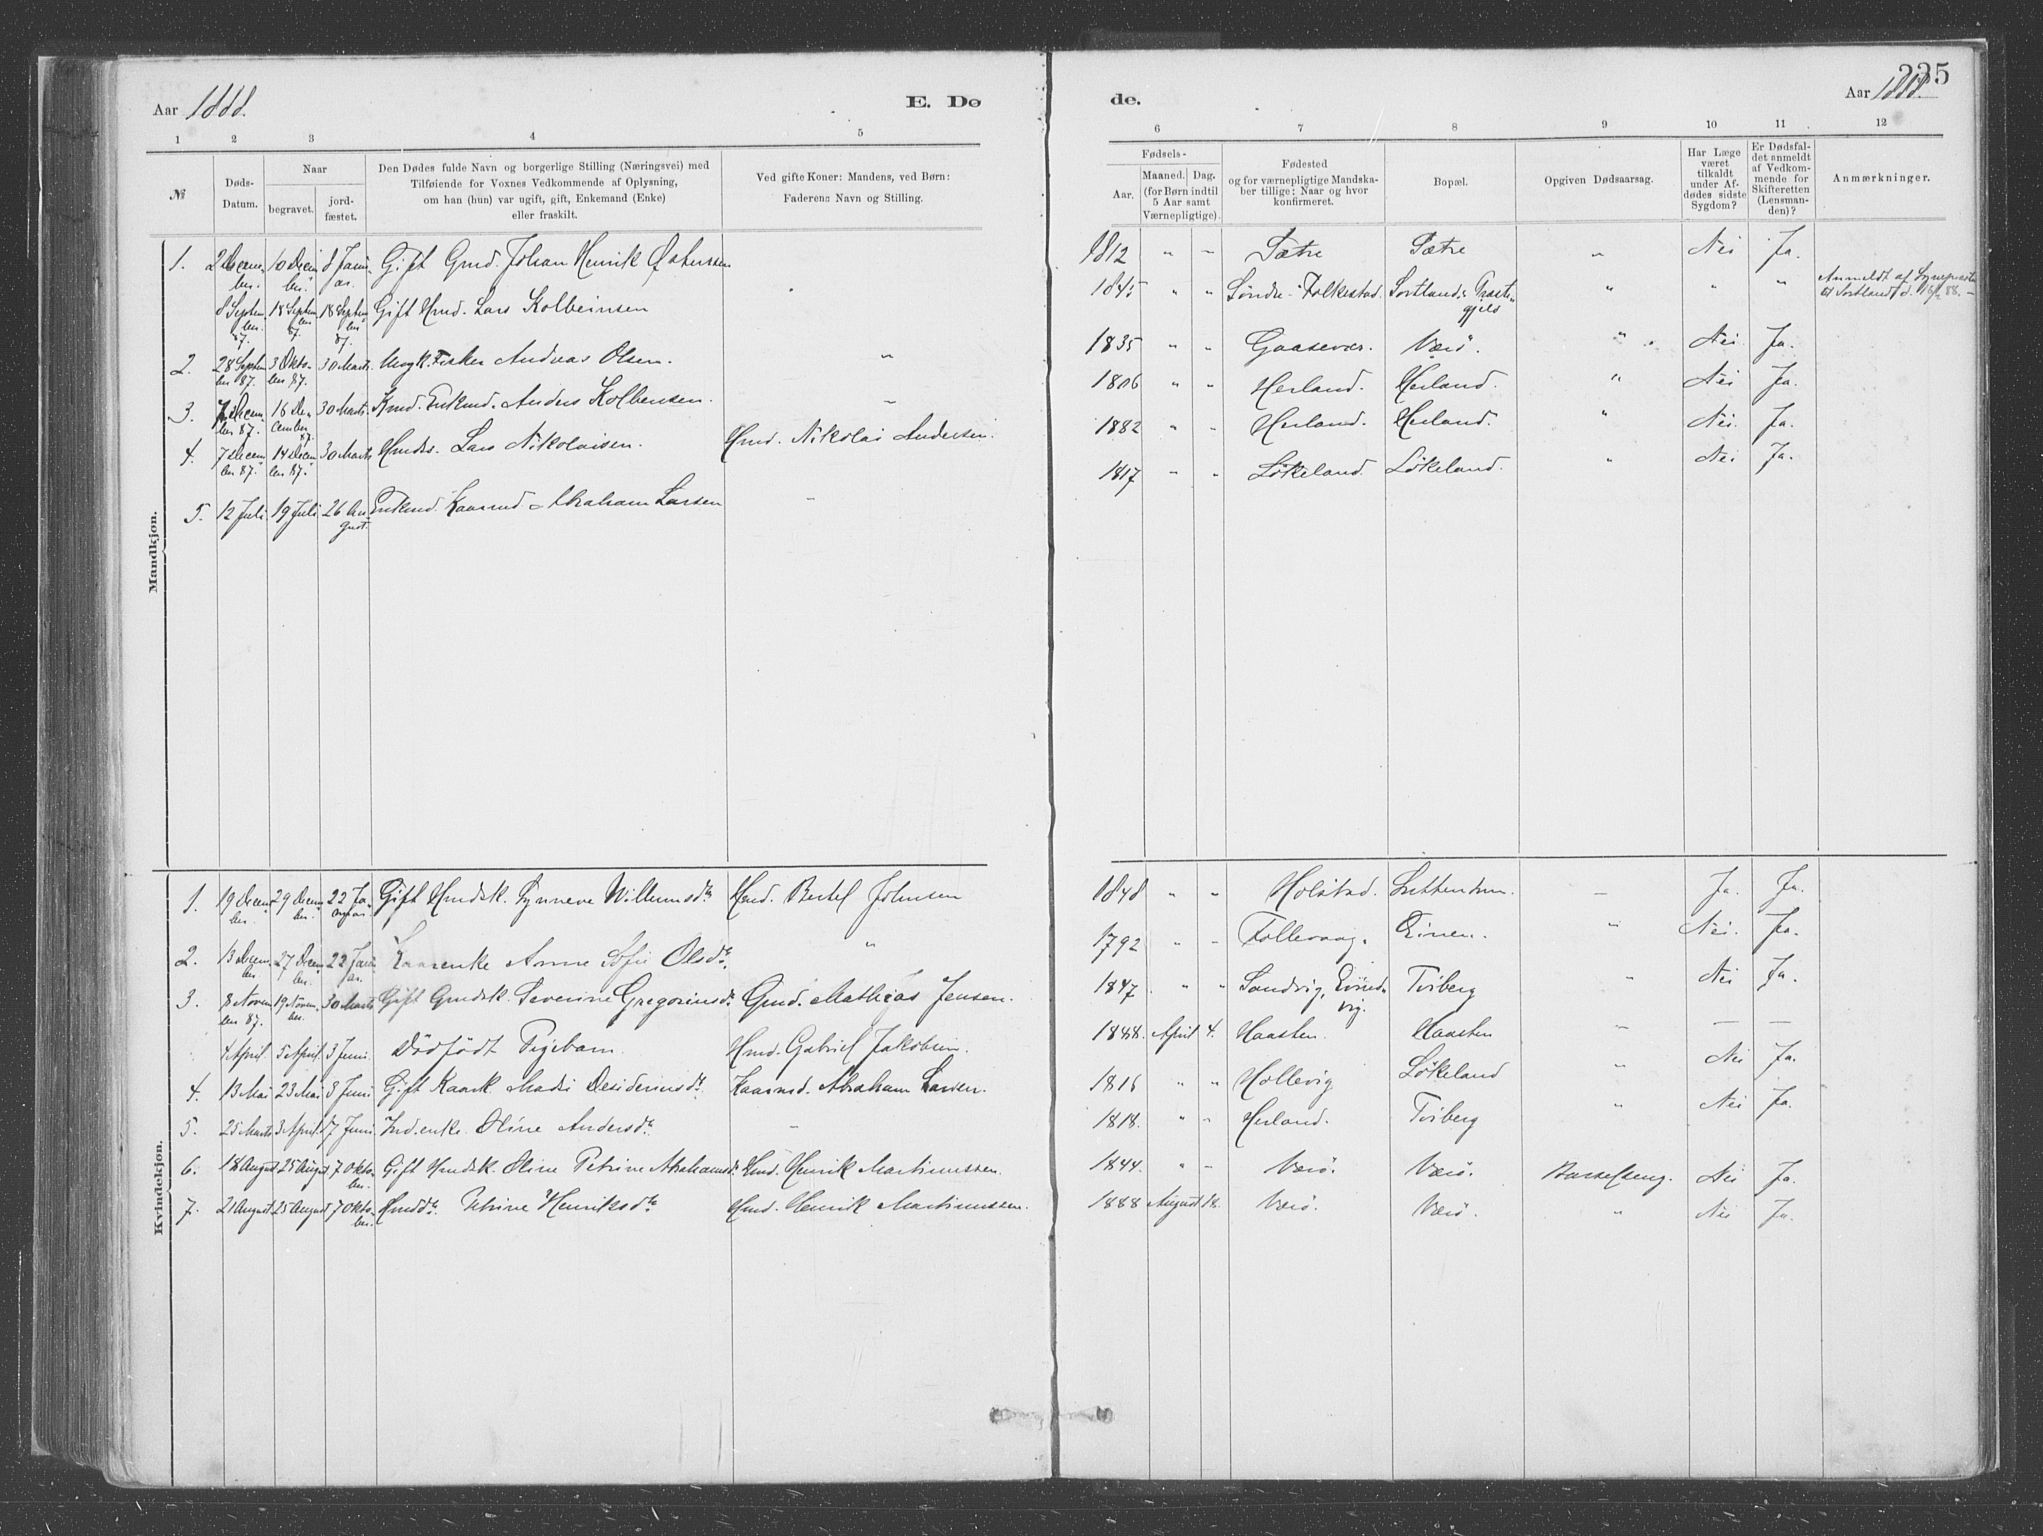 Aar 1888. E. Dø de. Aar 1888. 235
1 2 3 4 5 6 7 8 9 10 11 12
№ Døds-Datum. Naar begravet. jord-fæstet. Den Dødes fulde Navn og borgerlige Stilling (Næringsvei) med Tilføiende for Voxnes Vedkommende af Oplysning, om han (hun) var ugift, gift, Enkemand (Enke) eller fraskilt. Ved gifte Koner: Mandens, ved Børn: Faderens Navn og Stilling. Fødsels- Aar. Maaned. Dag. (for Børn indtil 5 Aar samt Værnepligtige). Fødested og for værnepligtige Mandska-ber tillige: Naar og hvor konfirmeret. Bopæl. Opgiven Dødsaarsag. Har Læge været tilkaldt under Af-dødes sidste Sygdom? Er Dødsfal-det anmeldt af Vedkom-mende for Skifteretten (Lensman-den)? Anmærkninger.
Mandkjøn.
1. 2 Decem-ber. 10 Decem-ber. 8 Janu-ar. Gift Gmd. Johan Henrik 1812 " " Sætre Sætre " Nei Ja.
8 Septem-ber 87. 18 Septem-ber 87. 18 Septem-ber 87. Gift Hmd. Lars Kolbeinsen 1845 " " Søndre-Folkestad. Sortlands Præste-gjeld " " " Anmeldt af Sognepræsten til Sortland
2. 28 Septem-ber 87. 3 Okto-ber 87. 30 Marts. Ungk. Fisker Andreas Olsen. " 1835 " " Gaasevær. Værö. " Nei. Ja.
3. 7 Decem-ber 87. 16 De-cember 87. 30 Marts. Kmd. Enkmd. Anders Kolbensen. " 1806 " " Herland. Herland. " Nei Ja.
4. 7 Decem-ber 87. 14 Decem-ber 87. 30 Marts Hmds. Lars Nikolaisen. Hmd. Nikolai Andersen. 1882 " " Herland. Herland. " Nei. Ja.
5. 12 Juli. 19 Juli 26 Au-gust. Enkmd. Kaarmd. Abraham Larsen " 1817 " " Lökeland. Lökeland. " Nei Ja.
Kvindekjøn.
1. 19 Decem-ber. 29 Decem-ber. 22 Ja-nuar Gift Hmdsk. Synneve Willumsdtr Hmd. Bertel Johnsen 1848 " " Holstad. — Ja. Ja.
2. 13 Decem-ber 27 Decem-ber. 22 Janu-ar. Kaarenke Anne Sofie Olsdtr. " 1792 " " Follevaag. Einen. " Nei. Ja.
3. 8 Novem-ber 87. 19 Novem-ber. 30 Marts Gift Gmdsk. Severine Gregoriusdtr. Gmd. Mathias Jensen. 1847 " " Sandvig, Eivind-vig. Tviberg " Nei Ja.
4 April. 5 April. 3 Juni. Dödfödt Pigebarn. Hmd. Gabriel Jakobsen. 1888. April 4. Haasten. Haasten " — —
4. 13 Mai 23 Mai 3 Juni Gift Kaark. Desideriusdtr. Kaarmd. Abraham Larsen. " " Hollevig Lökeland " Nei Ja.
5. 25 Marts 3 April. 17 Juni Ind.enke. Oline Andersdtr. " 1818. " " Herland. Tviberg " Nei Ja.
6. 18 August 25 August 7 Okto-ber. Gift Hmdsk. Oline Petrine Abrahamsdtr. Hmd. Henrik Martinussen. 1844. " " Værö. Værö. Barselseng. Nei Ja.
7. 21 August 25 August 7 Okto-ber. Hmddtr. Petrine Henriksdtr Hmd. Henrik Martinussen. 1888 August 18. Værö. Værö. " Nei Ja.